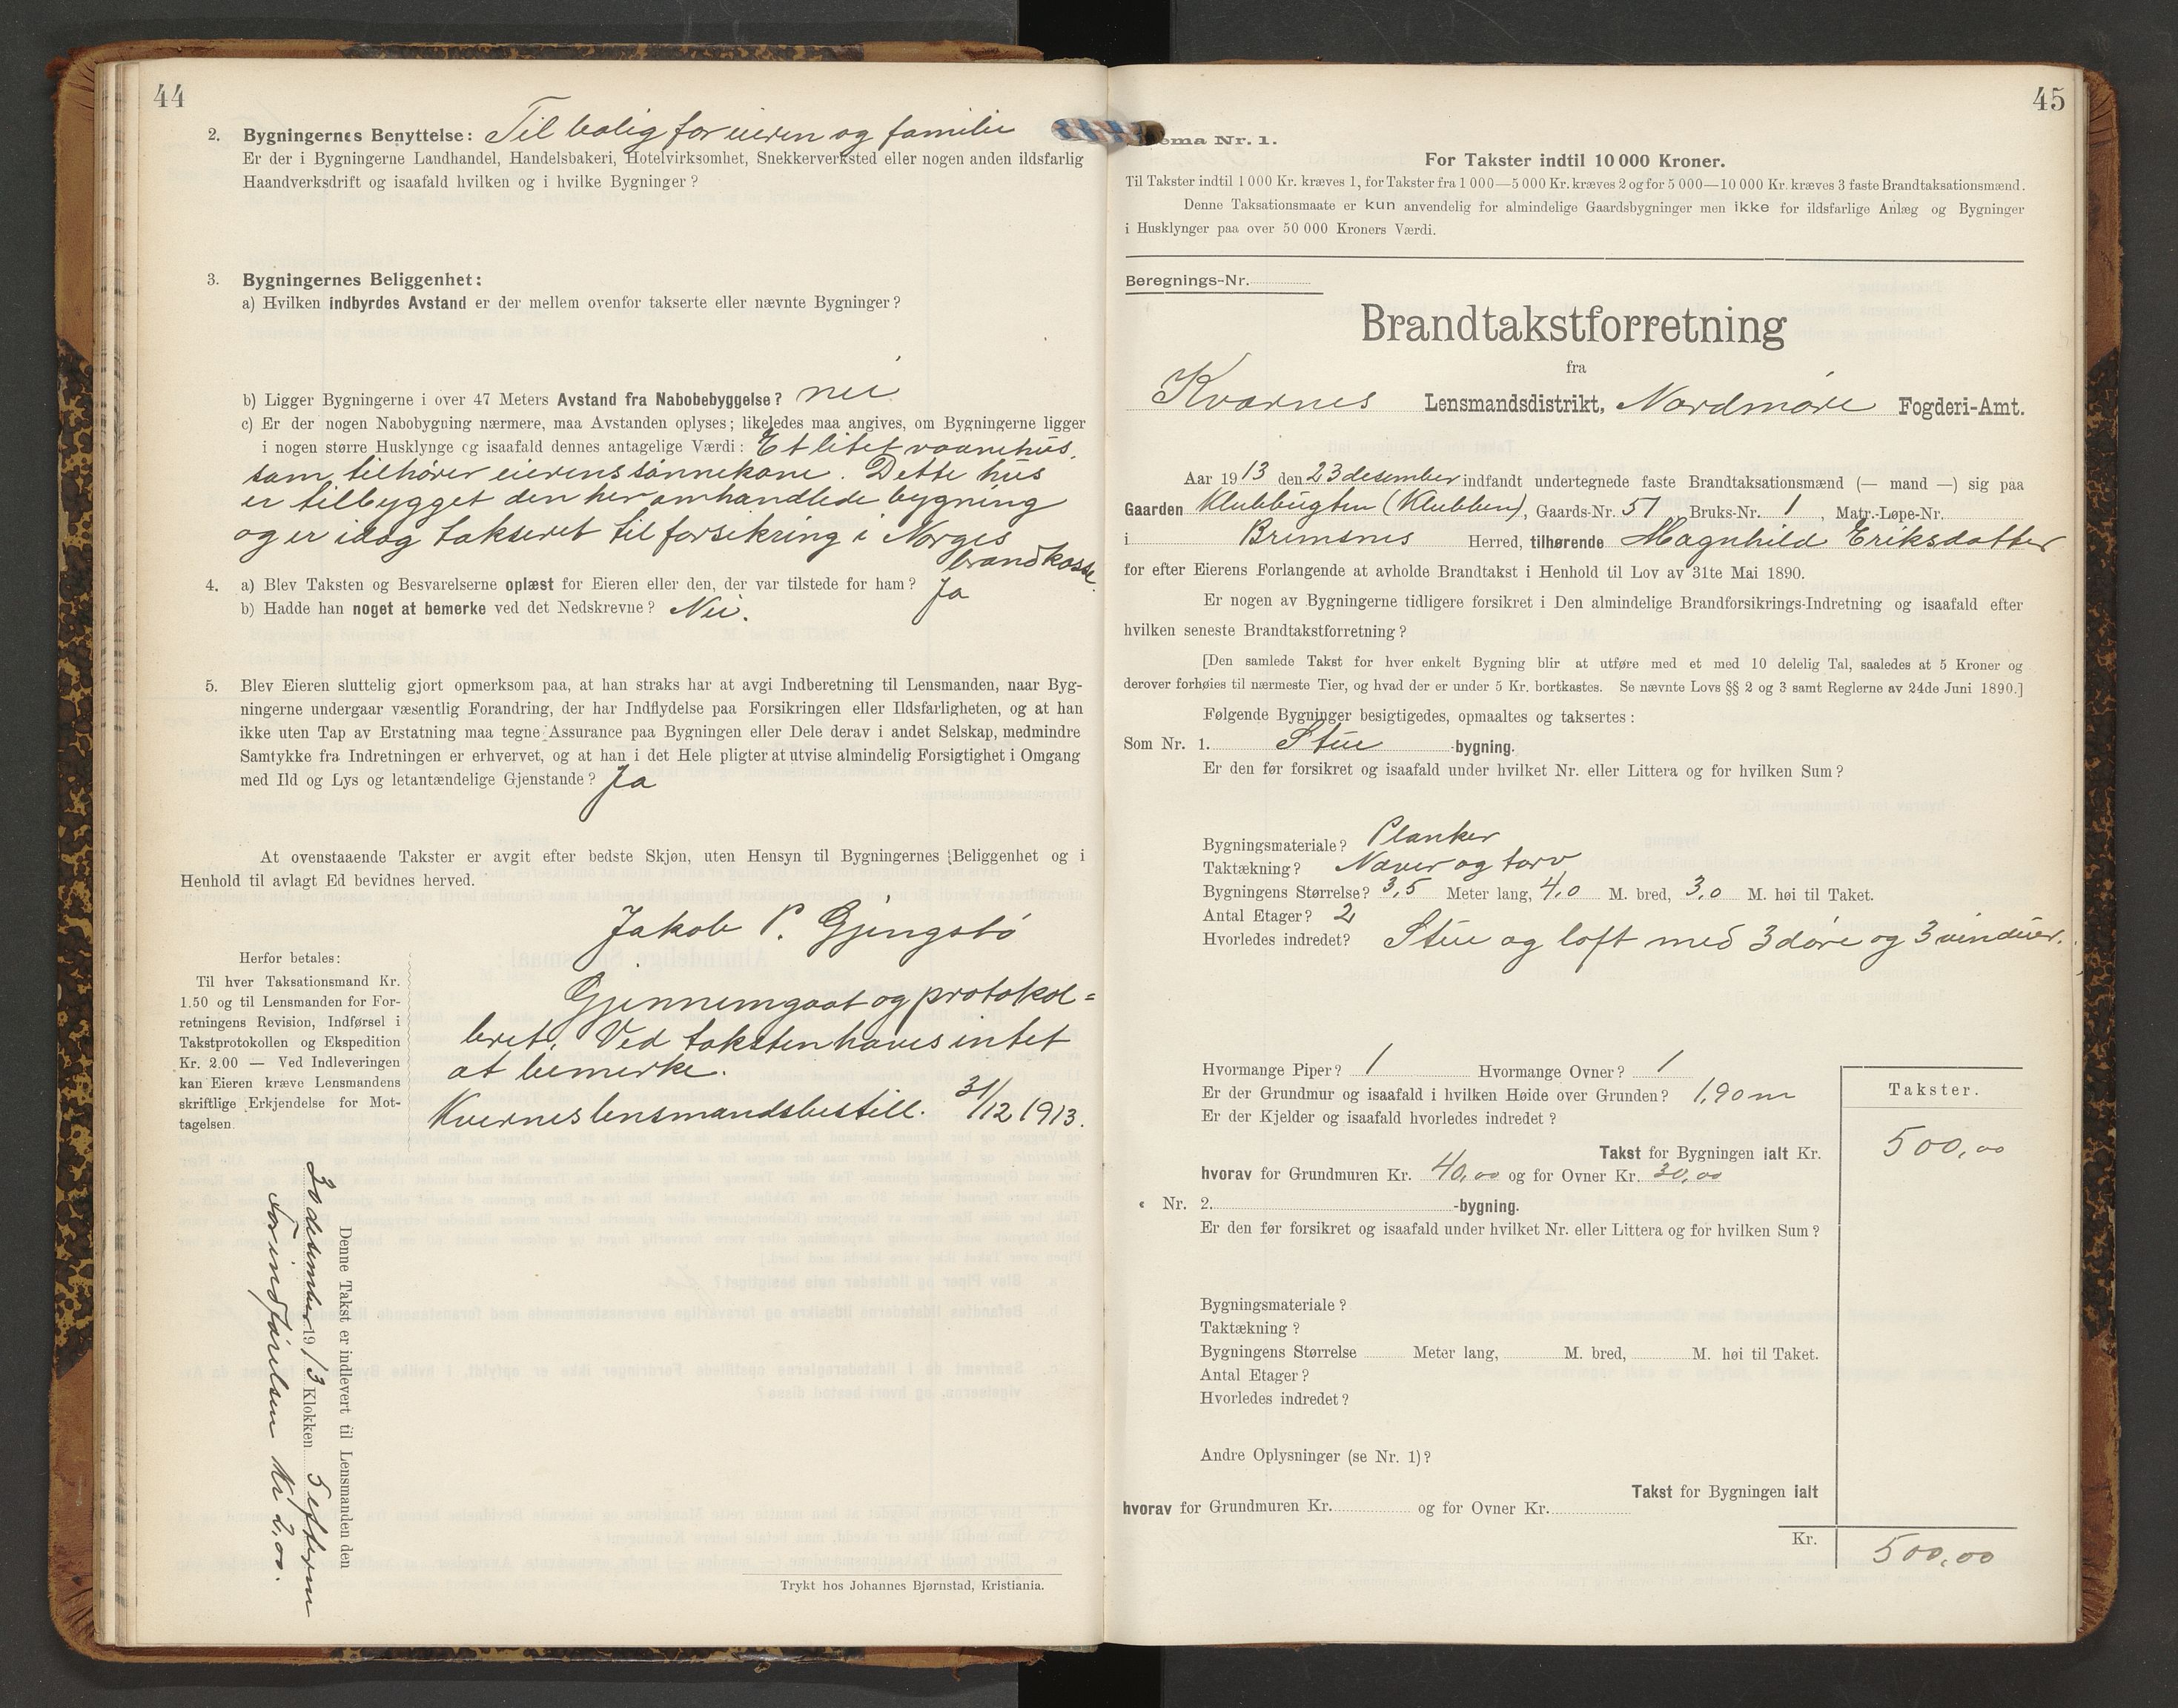 44
2. Bygningernes Benyttelse: Til bolig for eieren og familie
Er der i Bygningerne Laudhandel, Handelsbakeri, Hotelvirksomhet, Snekkerverksted eller nogen anden ildsfarlig
Haandverksdrift og isaafald hvilken og i hvilke Bygninger?
3. Bygningernes Beliggenhet:
a) Hvilken indbyrdes Avstand er der mellem ovenfor takserte eller nævnte Bygninger?
b) Ligger Bygningerne i over 47 Meters Avstand fra Nabobebyggelse? nei
c) Er der nogen Nabobygning nærmere, maa Avstanden oplyses; likeledes maa angives, om Bygningerne ligger
i nogen større Husklynge og isaafald dennes antagelige Værdi: Et litet vaanehus,
som tilhører eierens sønnekone. Dette hus
er tilbygget den her omhandlede bygning
og er idag takseret til forsikring i Norges
brandkasse.
4. a) Blev Taksten og Besvarelserne oplæst for Eieren eller den, der var tilstede for ham? Ja
b) Hadde han noget at bemerke ved det Nedskrevne? Nei.
5. Blev Eieren sluttelig gjort opmerksom paa, at han straks har at avgi Indberetning til Lensmanden, naar Byg-
ningerne undergaar væsentlig Forandring, der har Indflydelse paa Forsikringen eller Ildsfarligheten, og at han
ikke uten Tap av Erstatning maa tegne Assurance paa Bygningen eller Dele derav i andet Selskap, medmindre
Samtykke fra Indretningen er erhvervet, og at han i det Hele pligter at utvise almindelig Forsigtighet i Omgang
med Ild og Lys og letantændelige Gjenstande? Ja
At ovenstaaende Takster er avgit efter bedste Skjøn, uten Hensyn til Bygningernes Beliggenhet og i
Henhold til avlagt Ed bevidnes herved.
Jakob P. Gjengstø
Herfor betales:
Til hver Taksationsmand Kr.
1.50 og til Lensmanden for For-
retningens Revision, Indførsel i
Takstprotokollen og Ekspedition
Kr. 2.00 — Ved Indleveringen
kan Eieren kræve Lensmandens
skriftlige Erkjendelse for Mot-
tagelsen.
Gjennemgaat og protokol=
leret. Ved taksten haves intet
at bemerke.
Kvernes lensmandsbestill. 31/12 1913.
Denne Takst er indlevert til Lensmanden den
30 desember 1913 Klokken 5 efterm
For indførelsen Kr 2,00.
Trykt hos Johannes Bjørnstad, Kristiania.
45
ema Nr. 1.
For Takster indtil 10 000 Kroner.
Til Takster indtil 1 000 Kr. kræves 1, for Takster fra 1 000—5 000 Kr. kræves 2 og for 5 000—10 000 Kr. kræves 3 faste Brandtaksationsmænd.
Denne Taksationsmaate er kun anvendelig for almindelige Gaardsbygninger men ikke for ildsfarlige Anlæg og Bygninger
i Husklynger paa over 50 000 Kroners Værdi.
Beregnings-Nr.
Brandtakstforretning
fra
Kvernes Lensmandsdistrikt, Nordmøre Fogderi-Amt.
Aar 1913 den 23 desember indfandt undertegnede faste Brandtaksationsmænd (— mand —) sig paa
Gaarden Klubbugten (Klubben), Gaards-Nr. 51 Bruks-Nr. 1, Matr.-Løpe-Nr.
i Bremsnes Herred, tilhørende Magnhild Eriksdatter
for efter Eierens Forlangende at avholde Brandtakst i Henhold til Lov av 31te Mai 1890.
Er nogen av Bygningerne tidligere forsikret i Den almindelige Brandforsikrings-Indretning og isaafald efter
hvilken seneste Brandtakstforretning?
[Den samlede Takst for hver enkelt Bygning blir at utføre med et med 10 delelig Tal, saaledes at 5 Kroner og
derover forhøies til nærmeste Tier, og hvad der er under 5 Kr. bortkastes. Se nævnte Lovs §§ 2 og 3 samt Reglerne av 24de Juni 1890.]
Følgende Bygninger besigtigedes, opmaaltes og taksertes:
Som Nr. 1. Stue -bygning.
Er den før forsikret og isaafald under hvilket Nr. eller Littera og for hvilken Sum?
Bygningsmateriale? Planker
Taktækning? Næver og torv
Bygningens Størrelse? 3,5 Meter lang, 4,0 M. bred, 3,0 M. høi til Taket.
Antal Etager? 2
Hvorledes indredet? Stue og loft med 3 døre og 3 vinduer.
Hvormange Piper? 1 Hvormange Ovner? 1
Er der Grundmur og isaafald i hvilken Høide over Grunden? 1,90 m
Er der Kjelder og isaafald hvorledes indredet?
Takster.
Takst for Bygningen ialt Kr. 500,00
hvorav for Grundmuren Kr. 40,00 og for Ovner Kr. 30,00
« Nr. 2. -bygning.
Er den før forsikret og isaafald under hvilket Nr. eller Littera og for hvilken Sum?
Bygningsmateriale?
Taktækning?
Bygningens Størrelse Meter lang, M. bred, M. høi til Taket.
Antal Etager?
Hvorledes indredet?
Andre Oplysninger (se Nr. 1)?
Takst for Bygningen ialt
hvorav for Grundmuren Kr. og for Ovner Kr.
Kr. 500,00